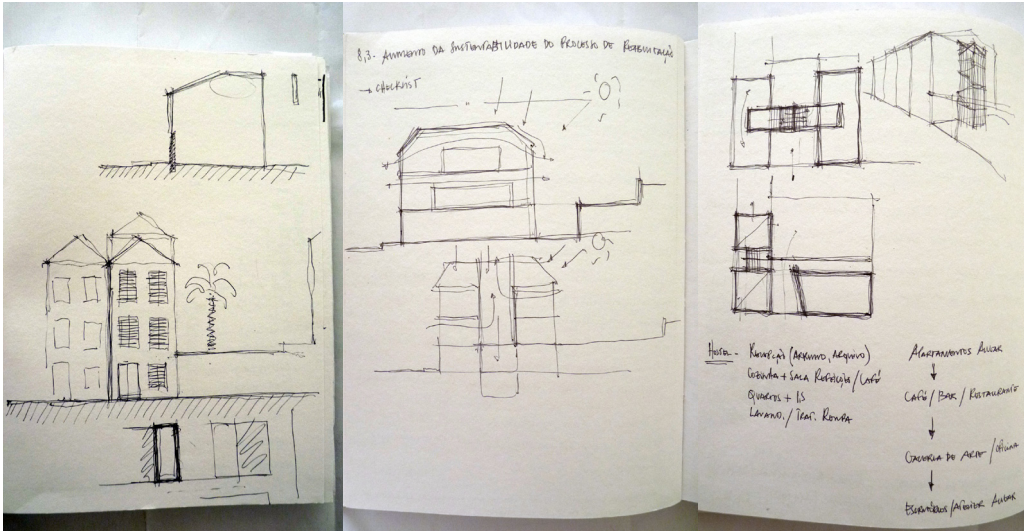 8,3- AUMENTO DA SUSTENTABILIDADE DO PROCESSO DE REABILITAÇÃO
→ CHECKLIST
HOSTEL - RECEPÇÃO (ARRUMO, ARQUIVO)
COZINHA + SALA REFEIÇÕES / CAFÉ
QUARTOS + IS
LAVAND. / TRAT. ROUPA
APARTAMENTOS ALUGAR
↓
CAFÉ / BAR / RESTAURANTE
↓
GALERIA DE ARTE / OFICINA
↓
ESCRITÓRIOS / ATELIER ALUGAR